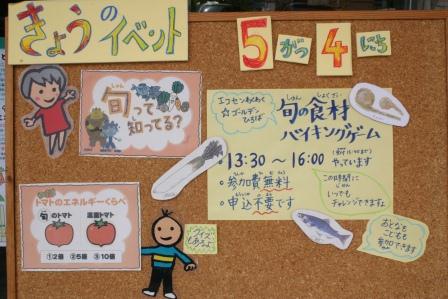 きょうのイベント
5がつ4にち
しゅん
旬って
し
知ってる?
エコセンわくわく
☆ゴールデン
ひろば
しゅん しょくざい
旬の食材
バイキングゲーム
13:30～16:00 やっています
この時間に
いつでも
チャレンジできますよ
・参加費無料
・申込不要です
クイズ
もあるよ
おとなも
こどもも
参加できます
トマトのエネルギーくらべ
旬のトマト 温室トマト
①2倍 ②5倍 ③10倍